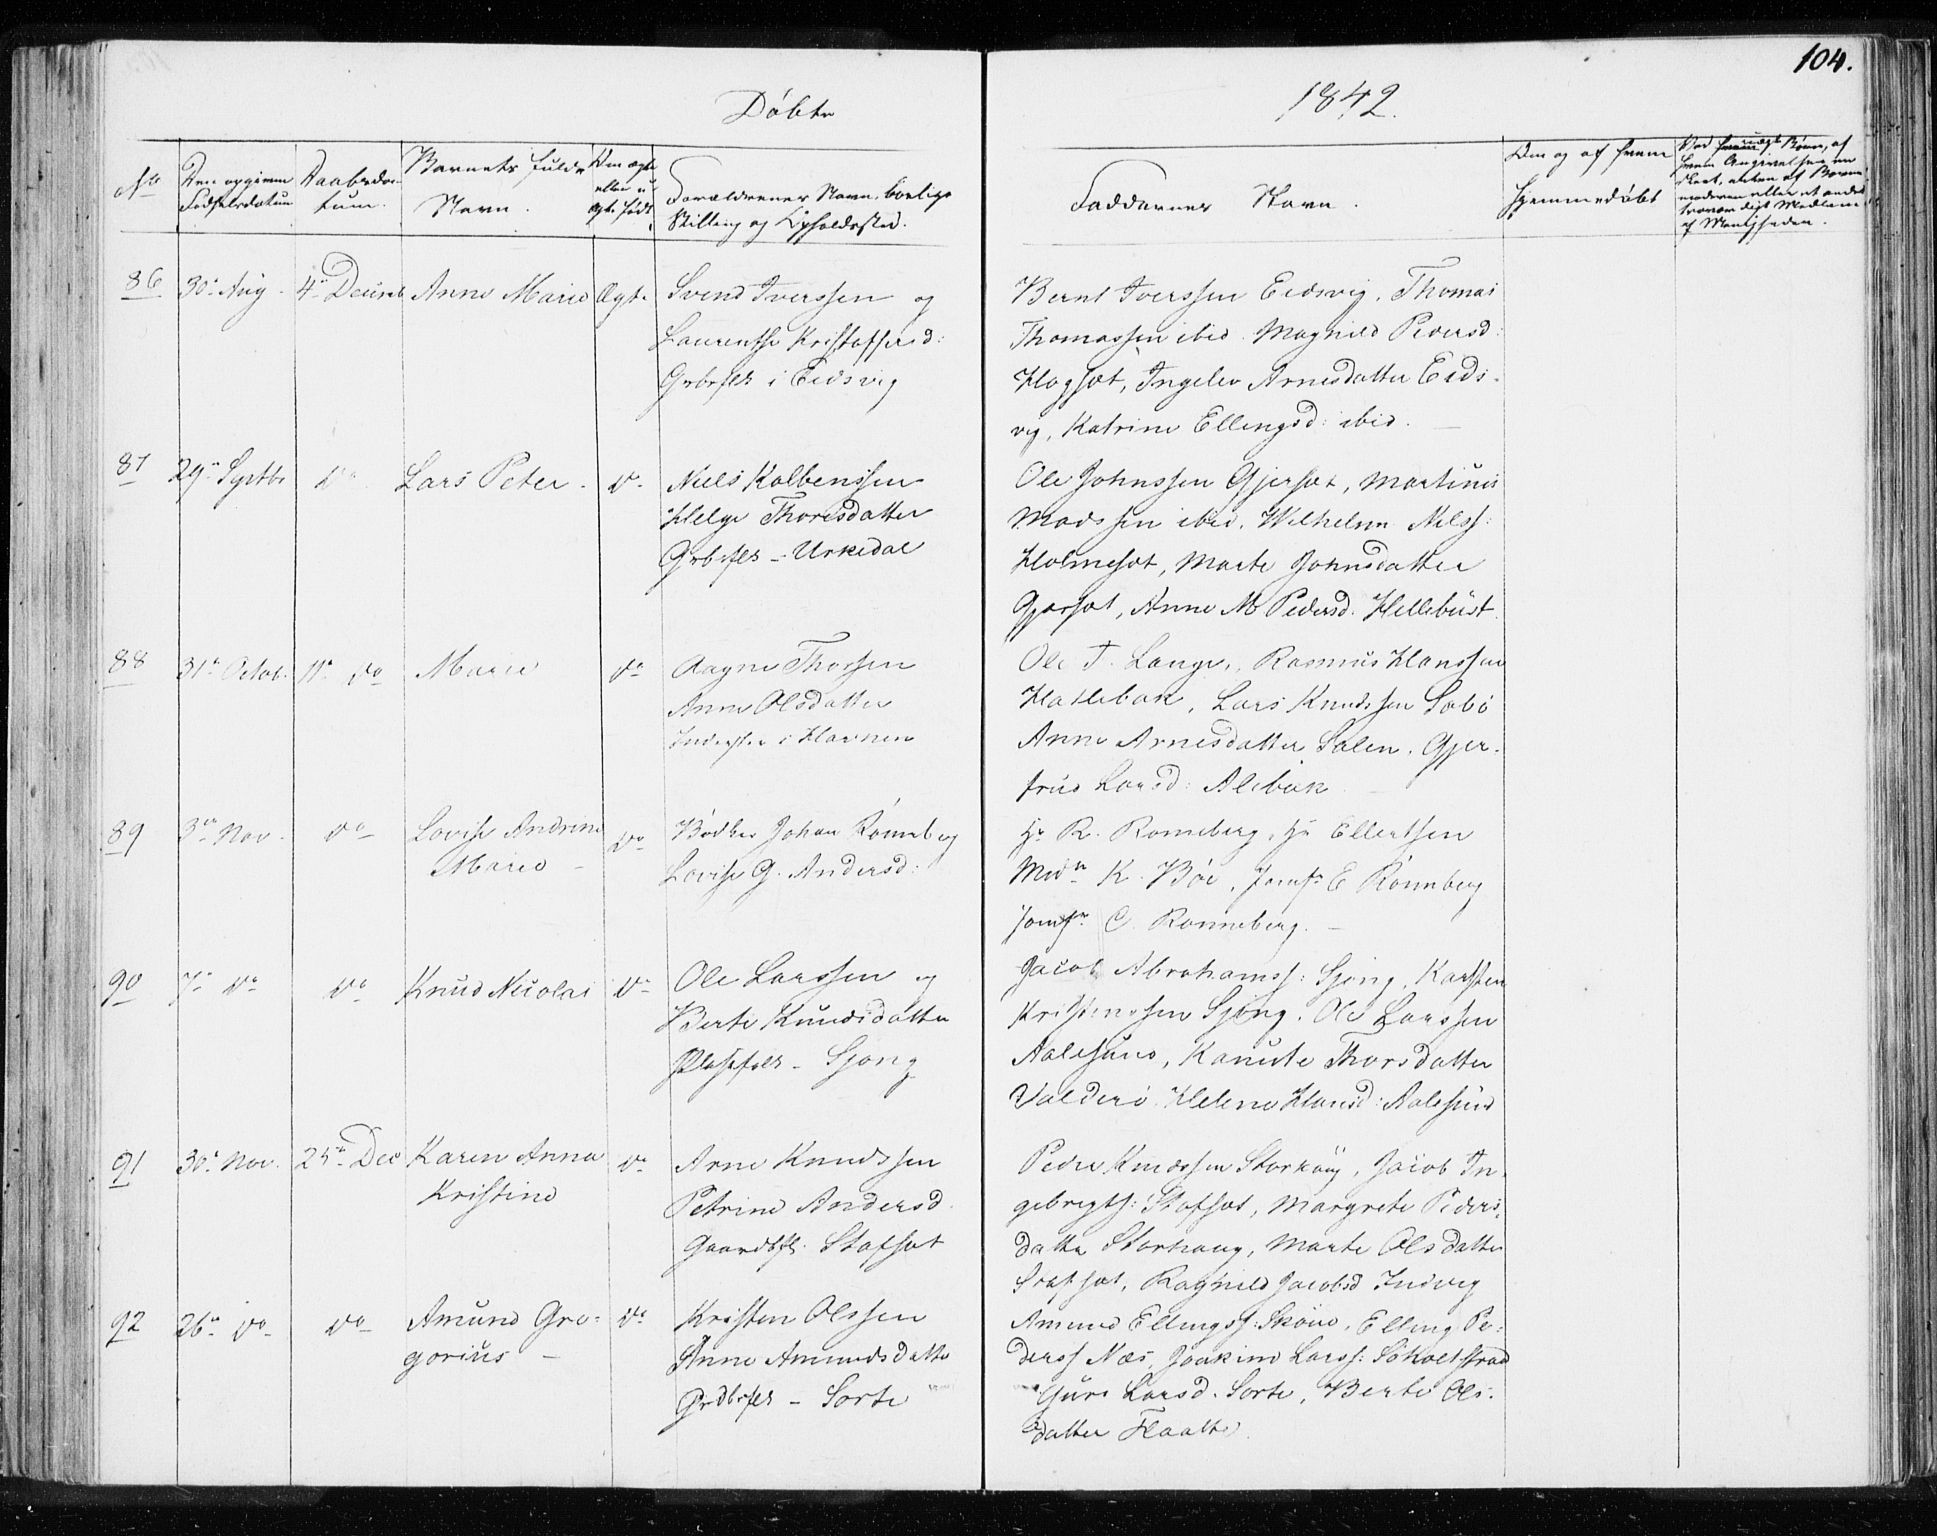 104.
Døbte
1842.
No
Den opgivne Fødselsdatum
Daabsdatum.
Barnets fulde Navn.
Om ægte eller uægte født
Forældrenes Navn, borlige Stilling og Opholdssted.
Faddernes Navn.
Om og af hvem hjemmedøbt
Ved uægte Børn, af hvem Angivelsen er skeet, enten af Barnemoderen eller et andet troværdigt Medlem af Menigheden.
86 30te Aug. 4de Decemb Anne Marie Ægte Svend Iverssen og
Laurentse Kristoffersd:
Grbrfolk i Eidsvig
Bernt Iverssen Eidsvig, Thomas
Thomassen ibid. Magnild Pedersd:
Hogsæt, Ingelev Arnesdatter Eids-
vig, Katrine Ellingsd: ibid.
87 29de Septbr do Lars Peter do Niels Kolbenssen
Helge Thoresdatter
Grbrfolk - Urkedal
Ole Johnssen Gjersæt, Martinus
Madssen ibid. Wilhelm Nilss:
Holmesæt, Marte Johnsdatter
Gjersæt, Anne M Pedersd. Hellebust
88 31te Octob. 11te do Marie do Aagne Thorsen
Anne Olsdatter
Inderster i Havnen
Ole T. Lange, Rasmus Hanssen
Hatlebak, Lars Knudssen Sæbø
Anne Arnesdatter Salen, Gjer-
trud Larsd: Alebak
89 3die Nov. do Lovise Andrine
Marie
do Bødker Johan Rønneberg
Lovise G. Andersd:
Hr R. Ronneberg, Hr Ellertsen
Mdm K. Bøe, Jomfr E Rønneberg
Jomfr C. Ronneberg.
90 7de do do Knud Nicolai do Ole Larssen og
Berte Knudsdatter
Pladsfolk - Sjong
Jacob Abrahamss: Sjong, Karsten
Kristenssen Sjong. Ole Larssen
Aalesund, Kanute Thorsdatter
Valderø. Helene Hansd: Aalesund
91 30te Nov. 25de Dec Karen Anna
Kristine
do Arne Knudssen
Petrine Andersd.
Gaardbfl. Stafsæt
Peder Knudssen Storhoug, Jacob In-
gebregts: Stafsæt, Margrete Peders-
datter Storhaug, Marte Olsdatter
Stafsæt, Ragnild Jacobsd Indvig
92 26de do do Amund Gre-
gorius
do Kristen Olssen
Anne Amundsdatter
Grdbrflk - Sorte
Amund Ellingss: Skoue, Elling Pe-
derss Næs, Joakim Larss:
Guri Larsd. Sorte, Berte Ols-
datter Flaatte.